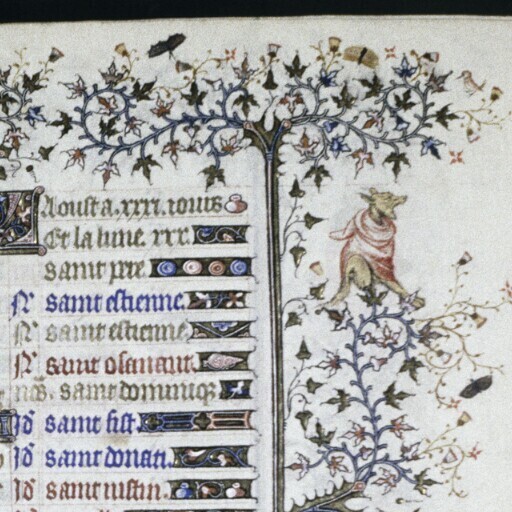 Aoust a. xxxi. iours
Et la lune. xxx.
saint pere.
N° saint estienne.
N° saint estienne.
N° saint osanaut.
no͞s. saint dominiq͛.
Jd' saint sist.
Jd' saint donati.
Jd' saint iustin.